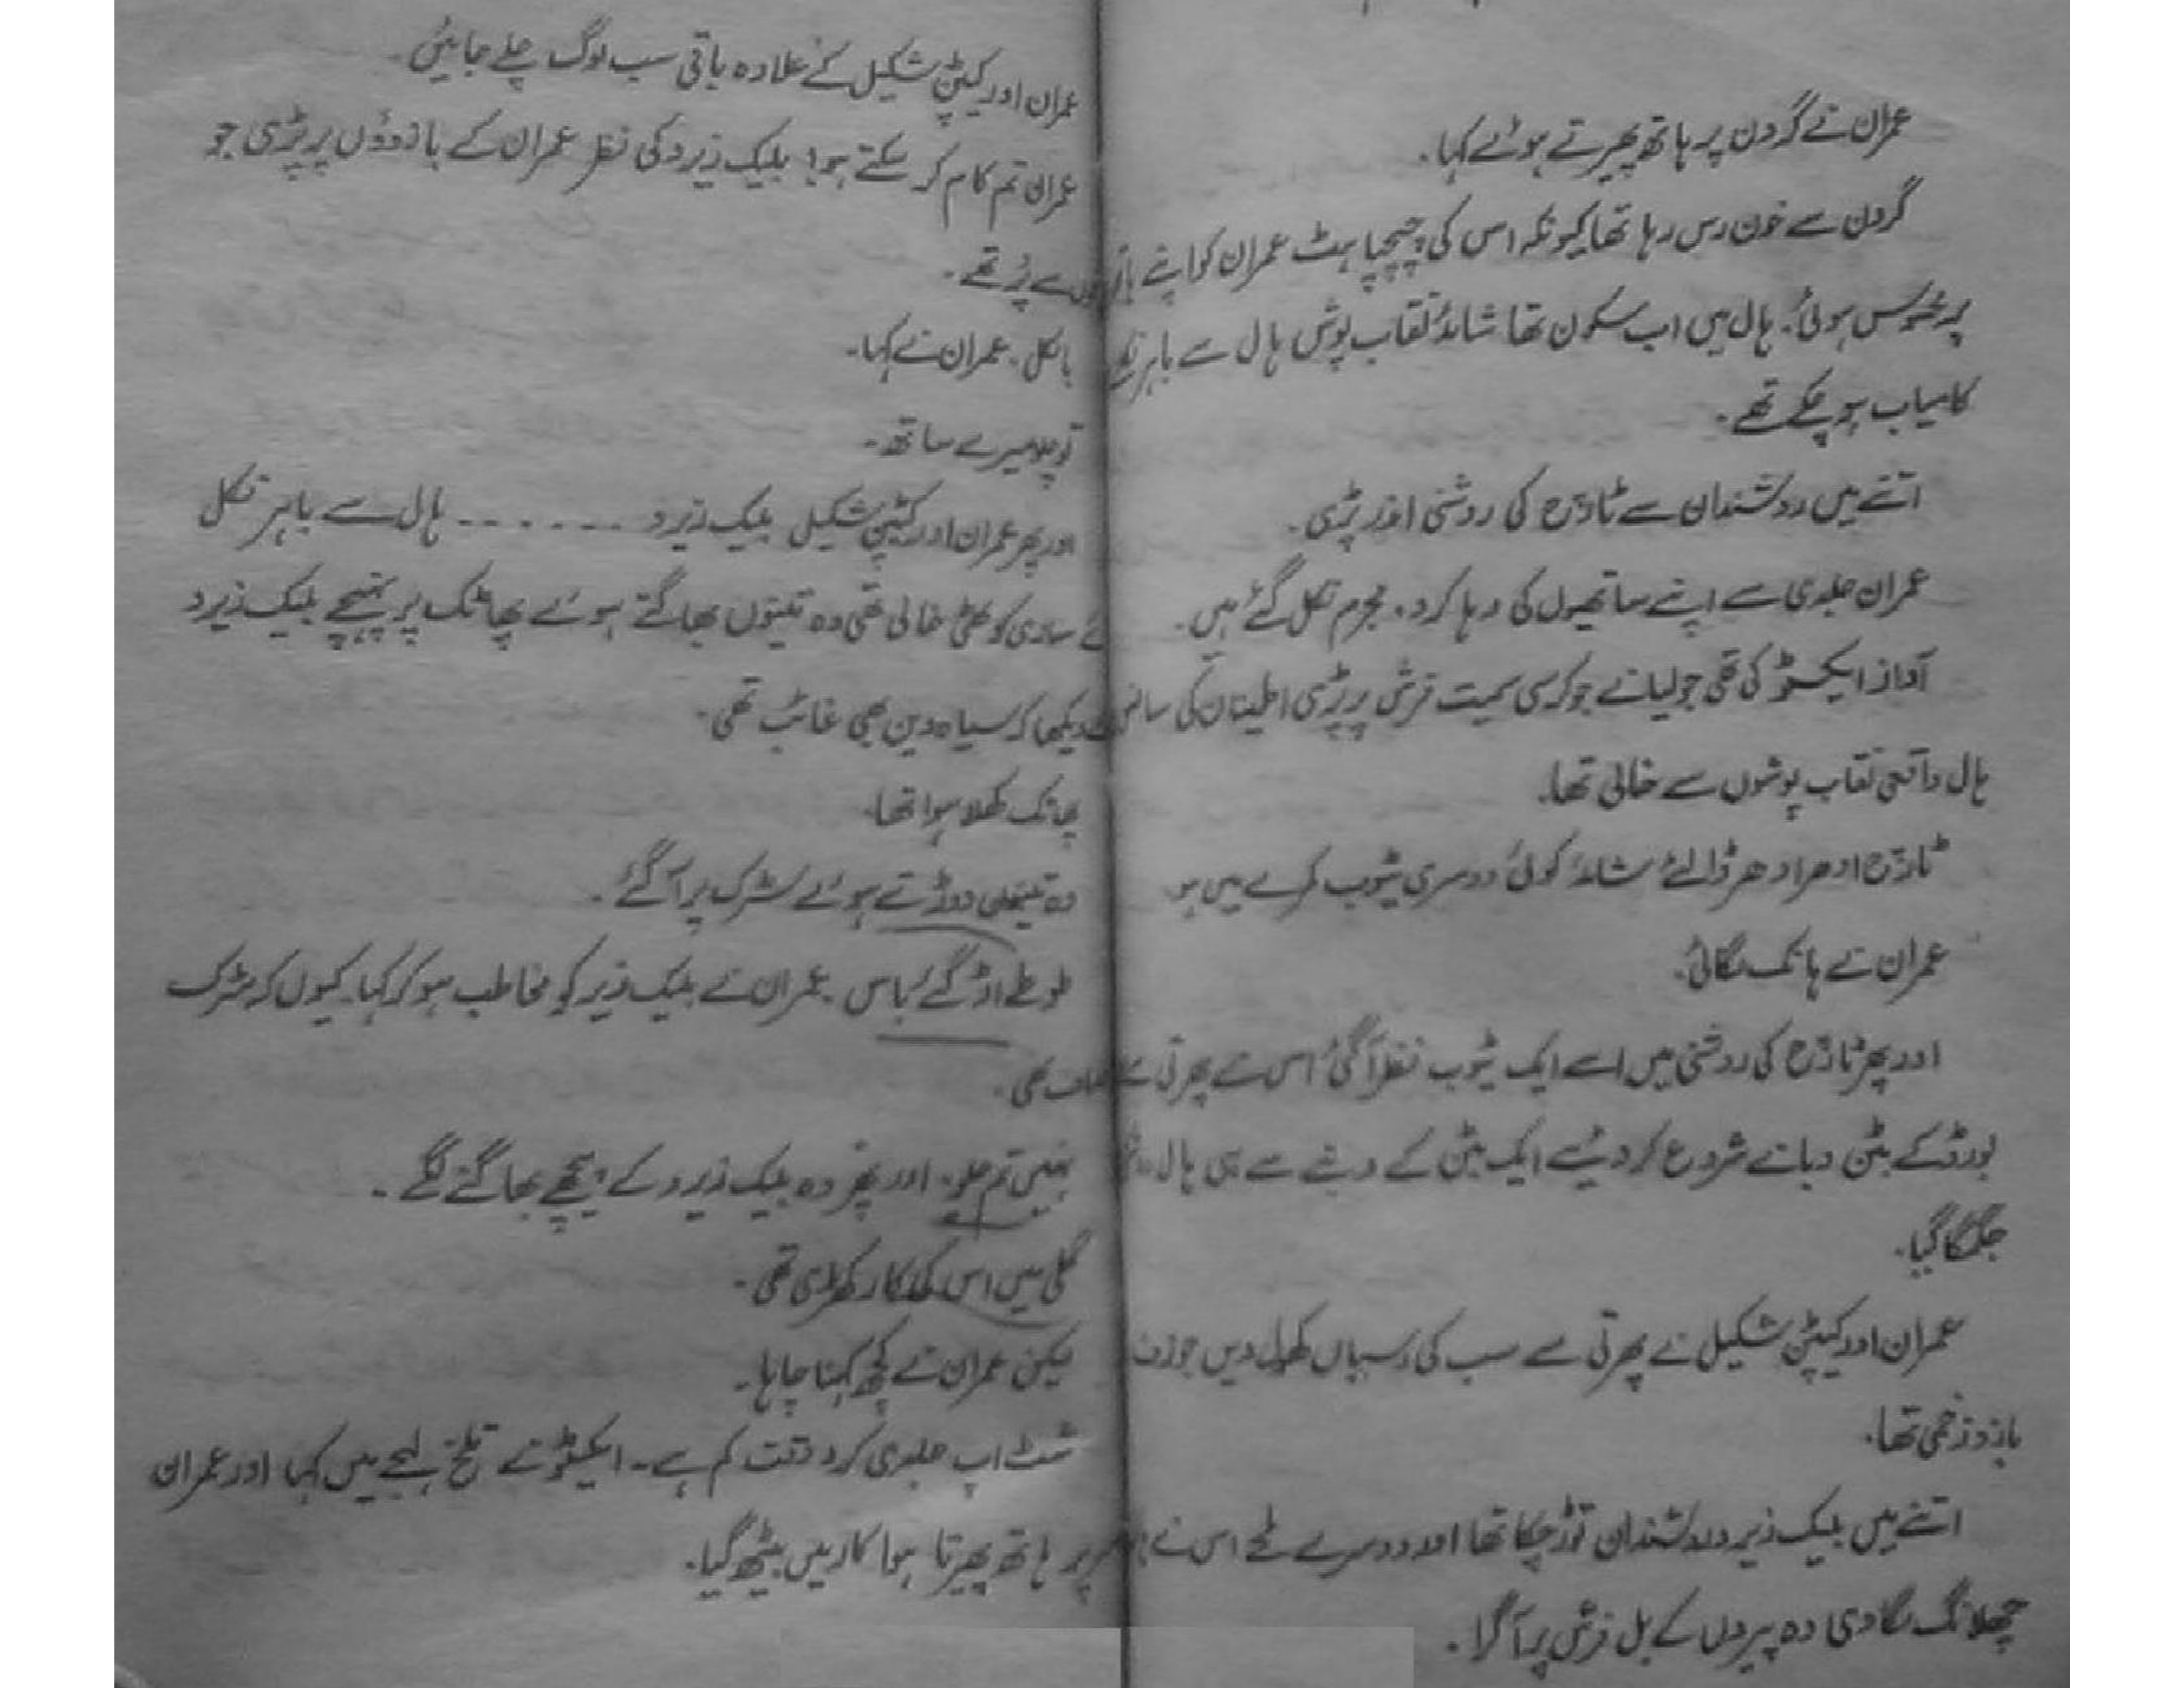 عمران نے گردن پر ہاتھ پھیرتے ہوئے کہا۔
گردن سے خون رس رہا تھا کیونکہ اس کی چپچپاہٹ عمران کو اپنے
پر محسوس ہوئی۔ ہال میں اب سکون تھا شائد نقاب پوش ہال سے باہر
کامیاب ہو چکے تھے۔
اتنے میں روشندان سے ٹارچ کی روشنی اندر پڑی۔
عمران جلدی سے اپنے ساتھیوں کی رہا کرو۔ مجرم نکل گئے ہیں۔
آواز ایکسٹو کی تھی جولیا نے جو کرسی سمیت فرش پر پڑی اطمینان کی سانس
ہال واقعی نقاب پوشوں سے خالی تھا۔
ٹارچ ادھر ادھر ڈالئے شائد کوئی دوسری ٹیوب کمرے میں ہو
عمران نے ہانک لگائی۔
اور پھر ٹارچ کی روشنی میں اسے ایک ٹیوب نظر آ گئی اس نے پھرتی سے
بورڈ کے بٹن دبانے شروع کر دیئے ایک بٹن کے دبنے سے ہی ہال
جگمگا گیا۔
عمران اور کیپٹن شکیل نے پھرتی سے سب کی رسیاں کھول دیں جوزف
بازو زخمی تھا۔
اتنے میں بلیک زیرو روشندان توڑ چکا تھا اور دوسرے لمحے اس نے
چھلانگ لگا دی وہ پیروں کے بل فرش پر آ گرا۔
عمران اور کیپٹن شکیل کے علاوہ باقی سب لوگ چلے جائیں۔
عمران تم کام کر سکتے ہو! بلیک زیرو کی نظر عمران کے بازوؤں پر پڑی جو
سے پُر تھے۔
بالکل۔ عمران نے کہا۔
تو چلو میرے ساتھ۔
اور پھر عمران اور کیپٹن شکیل بلیک زیرو ------- ہال سے باہر نکل
ئے ساری کوٹھی خالی تھی وہ تینوں بھاگتے ہوئے پھاٹک پر پہنچے بلیک زیرو
دیکھا کہ سیاہ وین بھی غائب تھی۔
پھاٹک کھلا ہوا تھا۔
وہ تینوں دوڑتے ہوئے سڑک پر آ گئے۔
طوطے اڑ گئے باس۔ عمران نے بلیک زیرو کو مخاطب ہو کر کہا کیوں کہ سڑک
صاف تھی۔
نہیں تم چلو۔ اور پھر وہ بلیک زیرو کے پیچھے بھاگنے لگے۔
گلی میں اس کی کار کھڑی تھی۔
لیکن عمران نے کچھ کہنا چاہا۔
شٹ اپ جلدی کرو وقت کم ہے۔ ایکسٹو نے تلخ لہجے میں کہا اور عمران
پر ہاتھ پھیرتا ہوا کار میں بیٹھ گیا۔